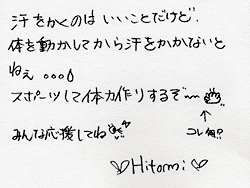 汗をかくのは いいことだけど.
体を動かしてから汗をかかないと
ねぇ 。。。
スポーツして体力作りするぞ〜
みんな応援してね
↑
コレ何?
Hitomi